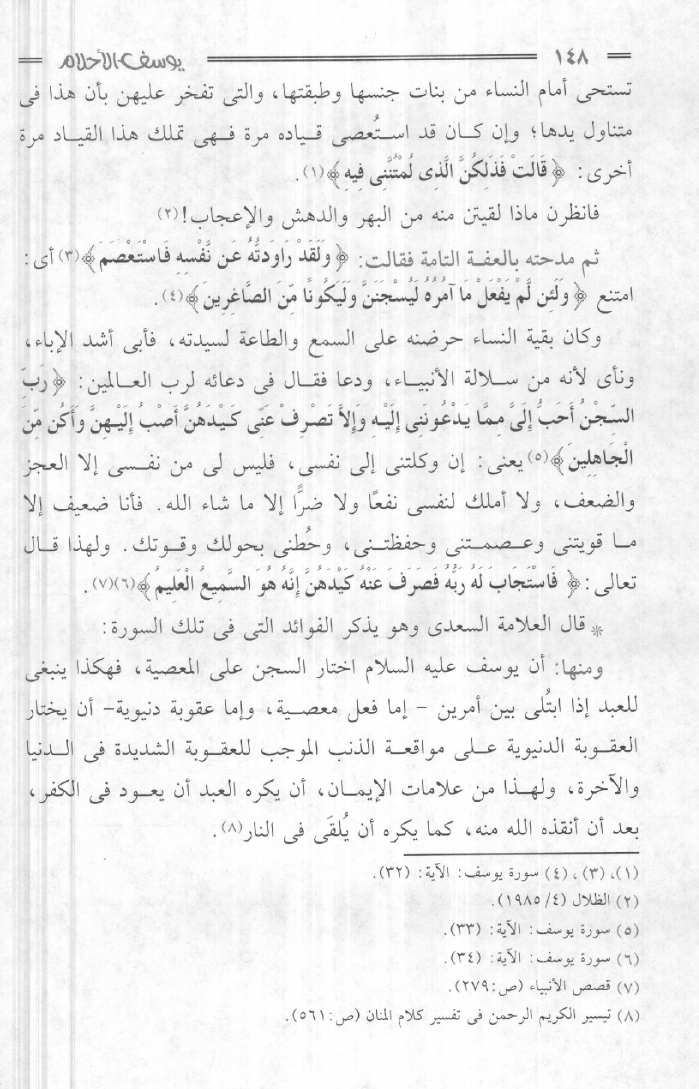 ١٤٨ يوسف الأحلام
تستحى أمام النساء من بنات جنسها وطبقتها، والتى تفخر عليهن بأن هذا فى
متناول يدها؛ وإن كان قد استُعصى قياده مرة فهى تملك هذا القياد مرة
أخرى: ﴿ قَالَتْ فَذَلِكُنَّ الَّذِى لُمْتُنَّنِى فِيهِ ﴾(١).
فانظرن ماذا لقيتن منه من البهر والدهش والإعجاب!(٢)
ثم مدحته بالعفة التامة فقالت: ﴿ وَلَقَدْ رَاوَدتُّهُ عَن نَّفْسِهِ فَاسْتَعْصَمَ ﴾(٣) أى:
امتنع ﴿ وَلَئِن لَّمْ يَفْعَلْ مَا آمُرُهُ لَيُسْجَنَنَّ وَلَيَكُونًا مِّنَ الصَّاغِرِينَ ﴾(٤).
وكان بقية النساء حرضنه على السمع والطاعة لسيدته، فأبى أشد الإباء،
ونأى لأنه من سلالة الأنبياء، ودعا فقال فى دعائه لرب العالمين: ﴿ رَبِّ
السِّجْنُ أَحَبُّ إِلَىَّ مِمَّا يَدْعُونَنِى إِلَيْهِ وَإِلاَّ تَصْرِفْ عَنِّى كَيْدَهُنَّ أَصْبُ إِلَيْهِنَّ وَأَكُن مِّنَ
الْجَاهِلِينَ ﴾(٥) يعنى: إن وكلتنى إلى نفسى، فليس لى من نفسى إلا العجز
والضعف، ولا أملك لنفسى نفعًا ولا ضرًّا إلا ما شاء الله. فأنا ضعيف إلا
ما قويتنى وعصمتنى وحفظتنى، وحُطنى بحولك وقوتك. ولهذا قال
تعالى: ﴿ فَاسْتَجَابَ لَهُ رَبُّهُ فَصَرَفَ عَنْهُ كَيْدَهُنَّ إِنَّهُ هُوَ السَّمِيعُ الْعَلِيمُ ﴾(٦)(٧).
* قال العلامة السعدى وهو يذكر الفوائد التى فى تلك السورة:
ومنها: أن يوسف عليه السلام اختار السجن على المعصية، فهكذا ينبغى
للعبد إذا ابتُلى بين أمرين - إما فعل معصية، وإما عقوبة دنيوية- أن يختار
العقوبة الدنيوية على مواقعة الذنب الموجب للعقوبة الشديدة فى الدنيا
والآخرة، ولهذا من علامات الإيمان، أن يكره العبد أن يعود فى الكفر،
بعد أن أنقذه الله منه، كما يكره أن يُلقَى فى النار(٨).
(١)، (٣)، (٤) سورة يوسف: الآية: (٣٢).
(٢) الظلال (٤/ ١٩٨٥).
(٥) سورة يوسف: الآية: (٣٣).
(٦) سورة يوسف: الآية: (٣٤).
(٧) قصص الأنبياء (ص: ٢٧٩).
(٨) تيسير الكريم الرحمن فى تفسير كلام المنان (ص: ٥٦١).